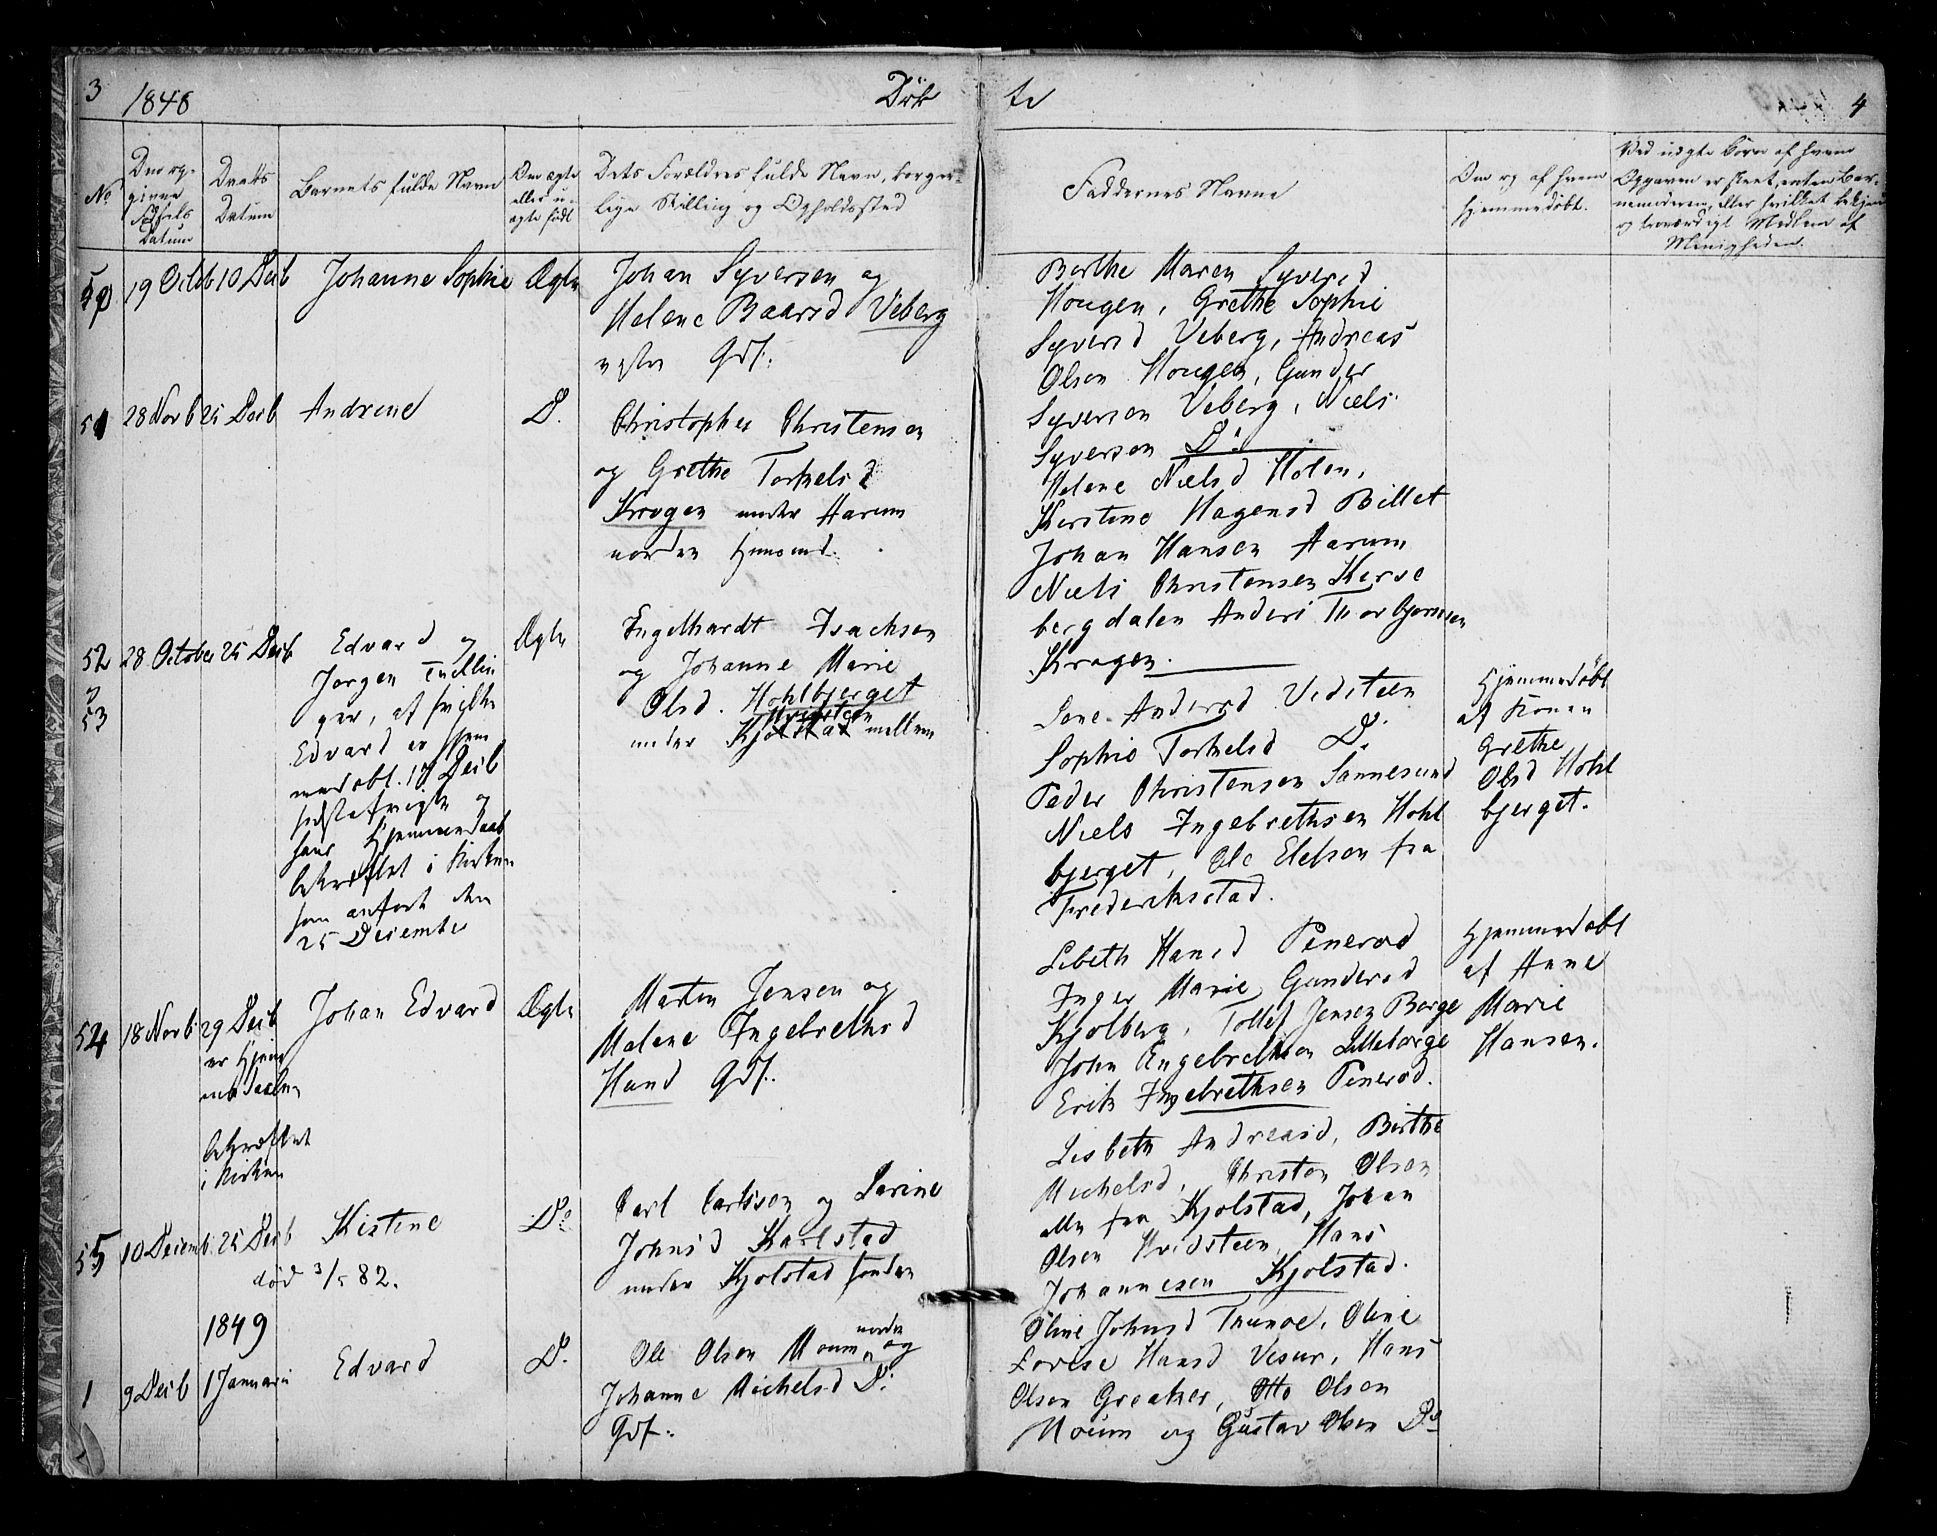 3 1848 Döb
te 4
No
Den op-
givne
Fødsels
Datum
Daabs
Datum
Barnets fulde Navn
Om ægte
eller u-
ægte født
Dets Forældres fulde Navn, borger-
lige Stilling og Opholdssted
Faddernes Navne
Om og af hvem
hjemmedøbt.
Ved uægte Børn af hvem
Opgaven er skeet, enten Bar-
nemoderen, eller hvilket bekjen
og troværdigt Medlem af
Menigheden.
50 19 Octb 10 Decb Johanne Sophie Ægte
Johan Syversen og
Helene Baarsd Veberg
vestre Gdf.
Berthe Maren Syversd
Hougen, Grethe Sophie
Syversd Veberg, Andreas
Olsen Hougen, Gunder
Syversen Veberg, Niels
Syversen Do
51 28 Novb 25 Decb Andrine D.
Christopher Christensen
og Grethe Torkelsd
Krogen under Aarum
norden Huusmd.
Helene Nielsd Holen,
Kerstine Hagensd Billet
Johan Hansen Aarum
Niels Christensen Kirse
bergdalen Anders Thorbjørnsen
Krogen.
52 28 October 25 Decb
53
Edvard og
Jørgen Tvillin
ger, af hvilke
Edvard er hjem
medøbt 17 Decb
sidstafvigte og
hans Hjemmedaab
bekræftet i Kirken
som anført den
25 Decembr
Ægte
Engelhardt Isachsen
og Johanne Marie
Olsd. Hohlbjerget
under Kjølstad mellem
Hvidsteen
Lene Andersd Vidsteen
Sophie Torkelsd D.
Peder Christensen Sannesund
Niels Ingebrethsen Hohl
bjerget, Ole Elefsen fra
Frederiksstad.
Hjemmedøbt
af Konen
Grethe
Olsd Hohl
bjerget.
54 18 Novb 29 Decb
er Hjem
medaaben
bekræftet
i Kirken
Johan Edvard Ægte
Morten Jensen og
Malene Ingebrethsd
Hund Gdf.
Lisbeth Hansd Penerød
Inger Marie Gundersd
Kjølberg, Tollef Jensen Borge
John Engebrethsen Lilleborge
Erik Ingebrethsen Penerød.
Hjemmedøbt
af Anne
Marie
Hansen.
55 10 Decemb. 25 Decb Kistine Do
død 3/5 82.
Carl Carlssen og Larine
Johnsd Karlstad
under Kjolstad sønden
Lisbeth Andreasd, Birthe
Michelsd, Christen Olsen
alle fra Kjolstad, Johan
Olsen Hvidsteen, Hans
Johannesen Kjolstad.
1849
1 9 Decb 1 Januari Edvard D.
Ole Olsen Moum norden og
Johanne Michelsd Do
Gdf.
Oline Johnsd Thunøe, Oline
Lovise Hansd Visur, Hans
Olsen Greaker, Otto Olsen
Moum og Gustav Olsen Do